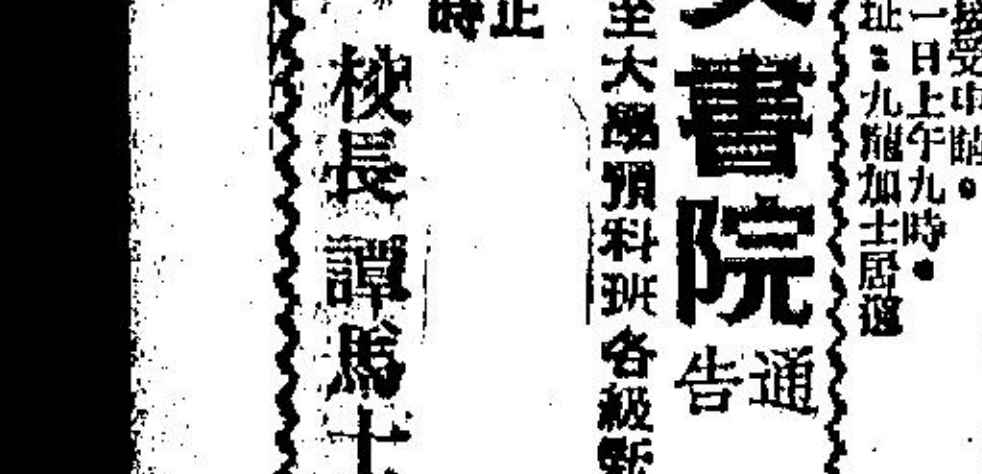 接受申購。
一日上午九時。
址：九龍加士居道
書院
通告
至大學預科班各級新
正
時
校長 譚馬士